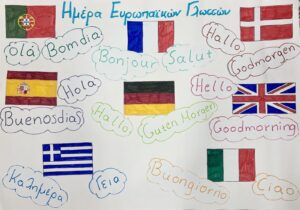 Ημέρα Ευρωπαϊκών Γλωσσών
Olá Bom dia
Bonjour Salut
Hallo
Godmorgen
Hola
Buenosdias
Hallo
Guten Morgen
Hello
Goodmorning
Καλημέρα
Γεια
Buongiorno
Ciao